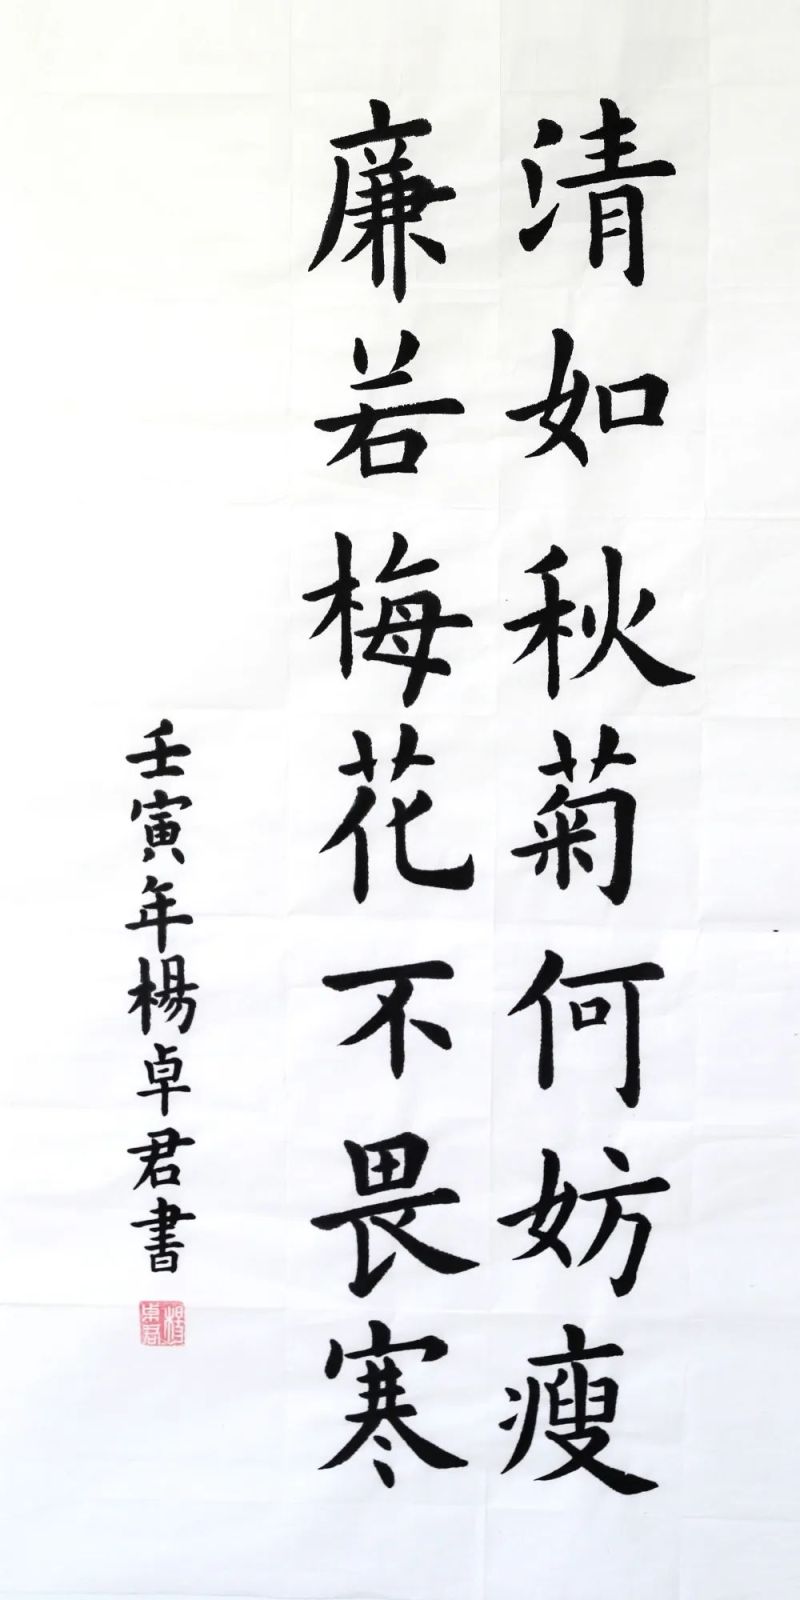 清如秋菊何妨瘦
廉若梅花不畏寒
壬寅年楊卓君書
楊卓君